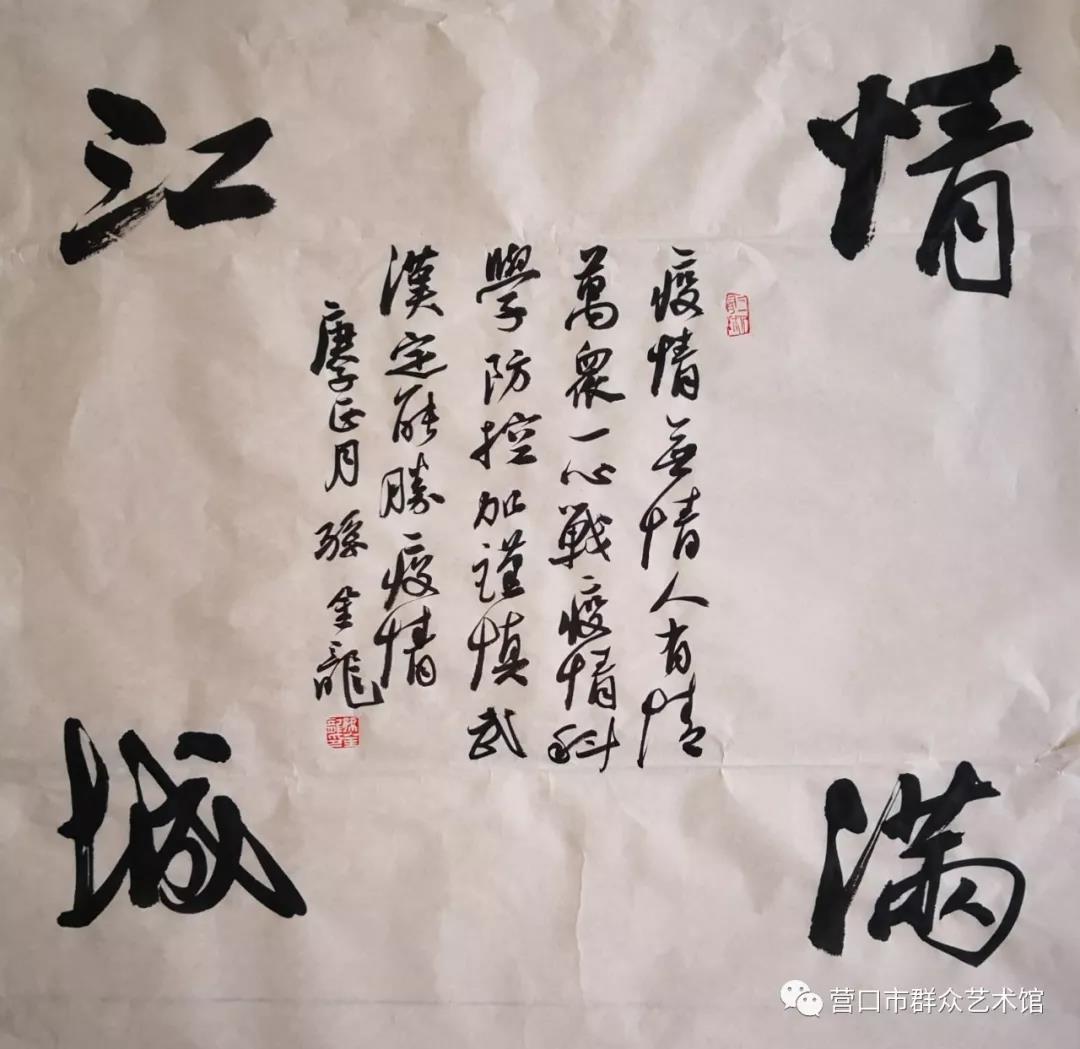 情
满
江
城
疫情無情人有情
萬衆一心戰疫情科
學防控加謹慎武
漢定能勝疫情
庚子正月 孫金龍
营口市群众艺术馆